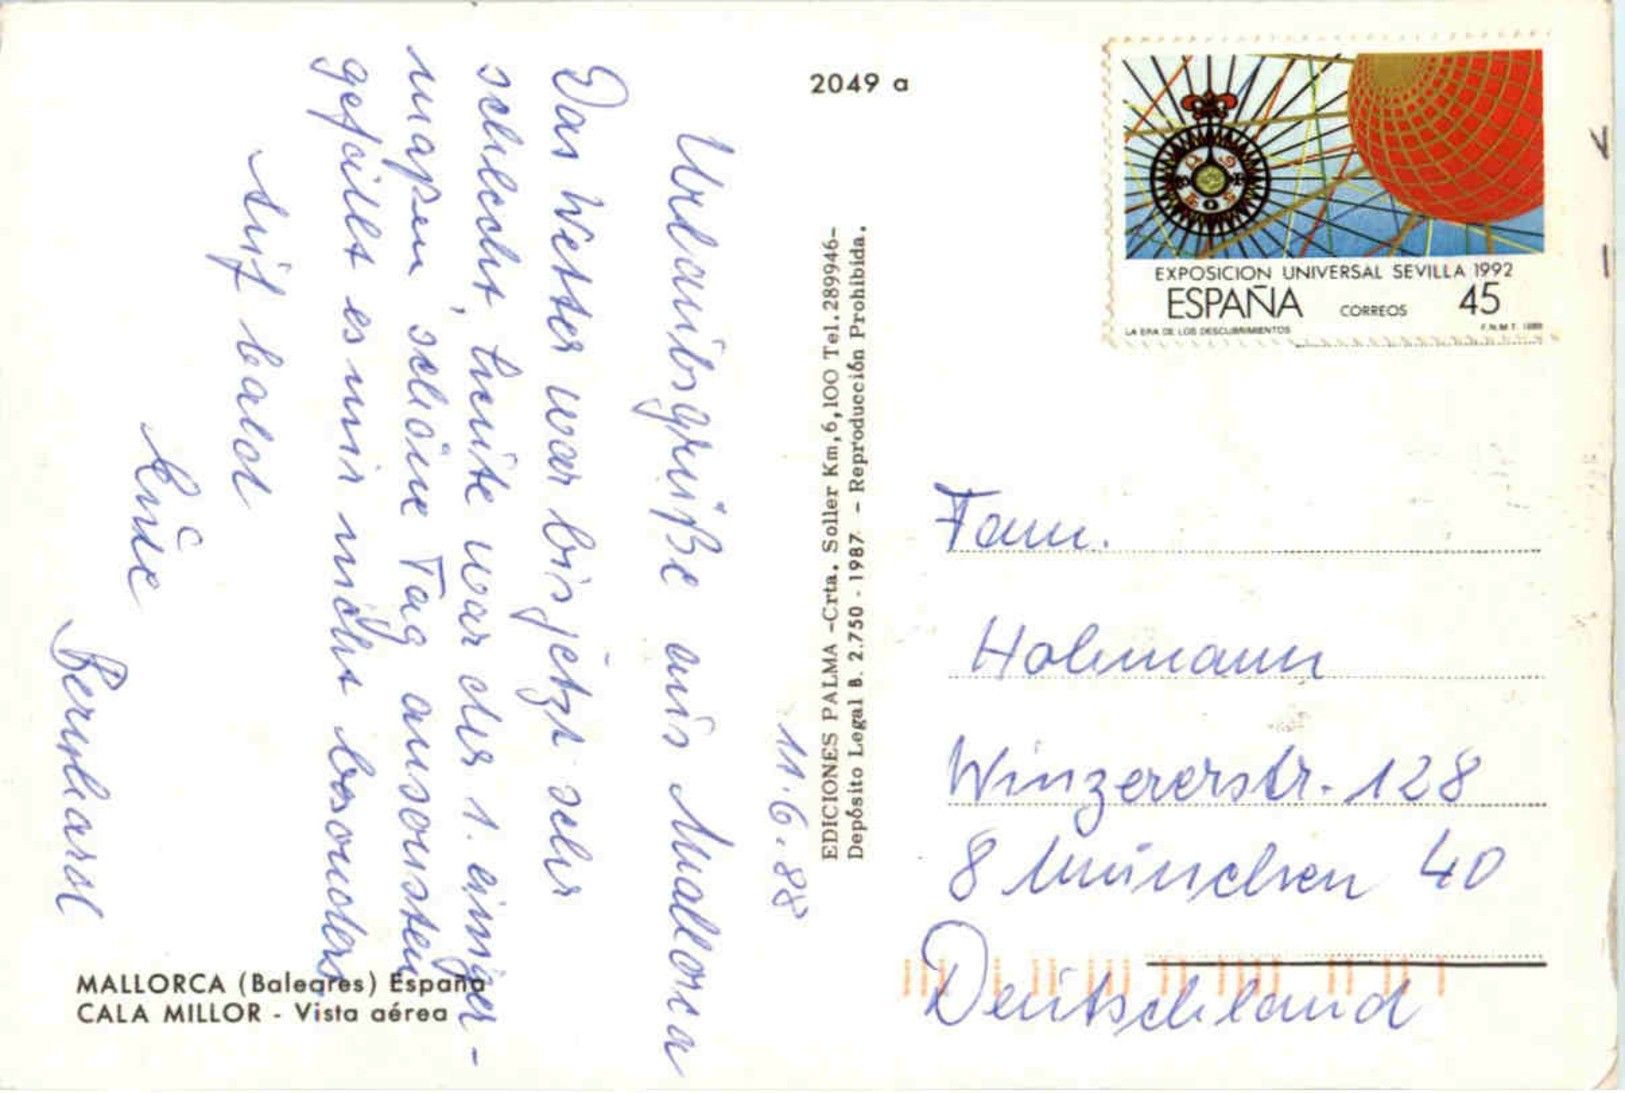 2049 a
11.6.88
Urlaubsgrüße aus Mallorca
Das Wetter war bis jetzt sehr
schlecht, heute war der 1. einiger-
maßen schöne Tag ansonsten
gefällt es mir nicht besonders
bis bald
Bernhard
MALLORCA (Baleares) España
CALA MILLOR - Vista aérea
EDICIONES PALMA -Crta. Soller Km,6,100 Tel.289946-
Depósito Legal B. 2.750 - 1987. - Reproducción Prohibida.
EXPOSICION UNIVERSAL SEVILLA 1992
ESPAÑA CORREOS 45
LA ERA DE LOS DESCUBRIMIENTOS F.N.M.T.
Fam.
Hohmann
Winzererstr. 128
8 München 40
Deutschland